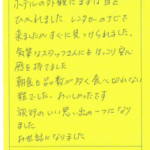 ホテルの外観にまずは目を
ひかれました。レンタカーのナビで
来ましたがすぐに見つけられました。
気質なスタッフさんにもほっこり安心
感を持てました
朝食も品数が多く食べ切れない
程でした。おいしかったです
旅行のいい思い出の一つになり
ました
お世話になりました